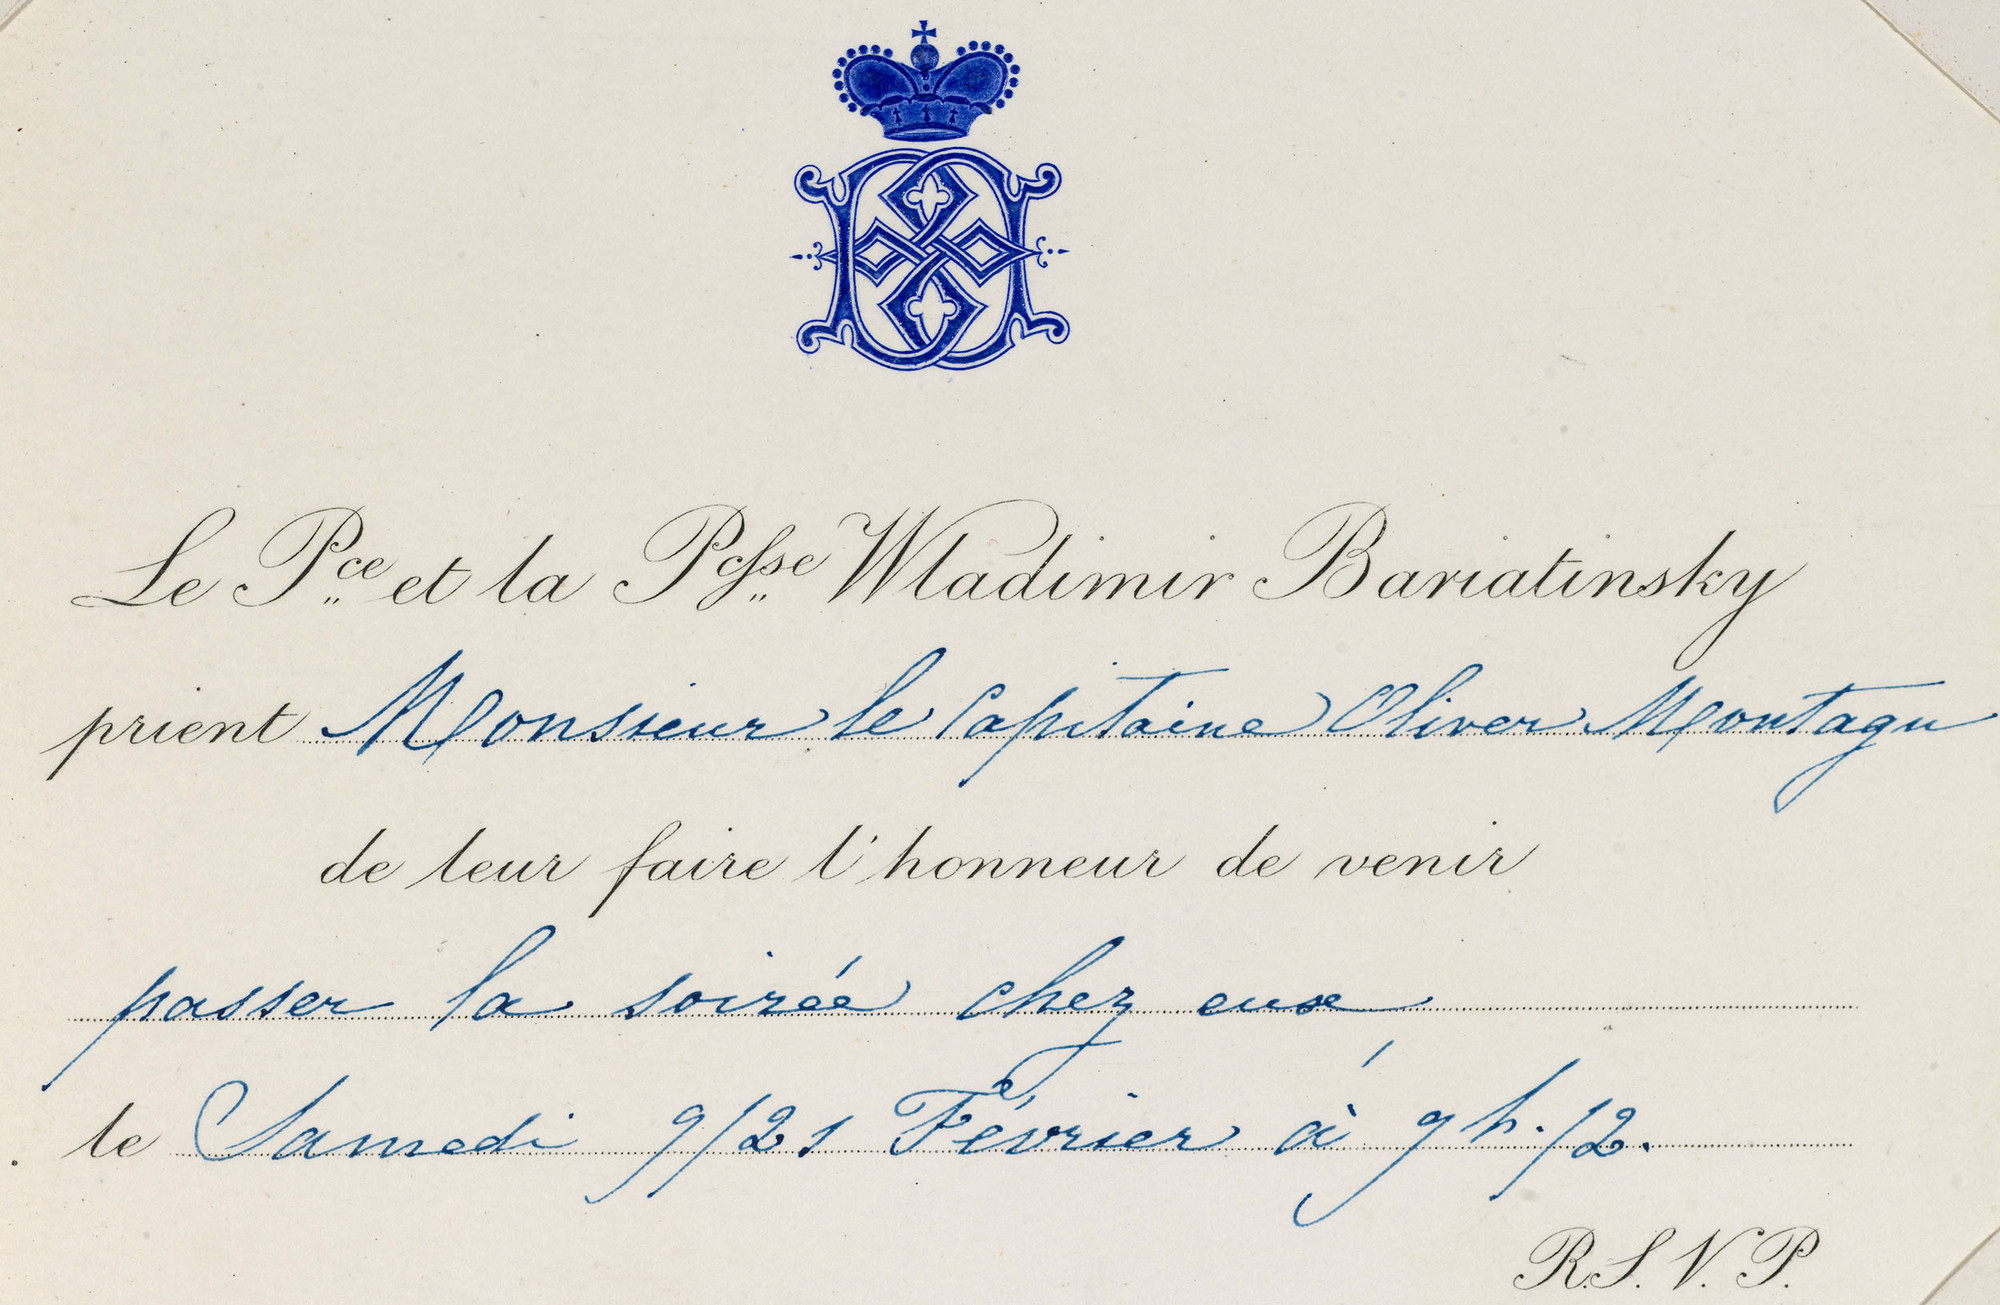 Le Pce et la Pcsse Wladimir Bariatinsky
prient Monsieur le Capitaine Oliver Montagu
de leur faire l'honneur de venir
passer la soirée chez eux
le Samedi 9/21 Février à 9 h. 1/2.
R.S.V.P.